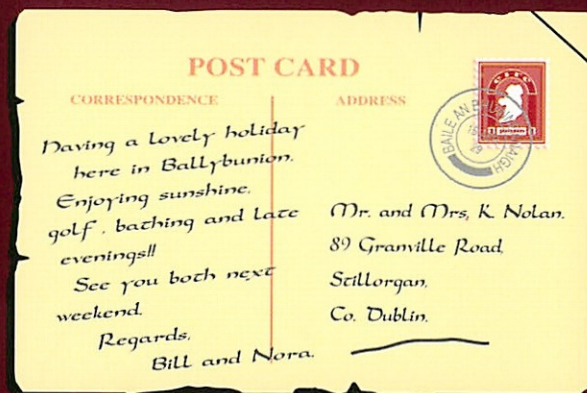 POST CARD
CORRESPONDENCE
ADDRESS
Having a lovely holiday
here in Ballybunion.
Enjoying sunshine,
golf, bathing and late
evenings!!
See you both next
weekend.
Regards,
Bill and Nora.
Mr. and Mrs, K. Nolan.
89 Granville Road,
Stillorgan,
Co. Dublin.
BAILE AN
29